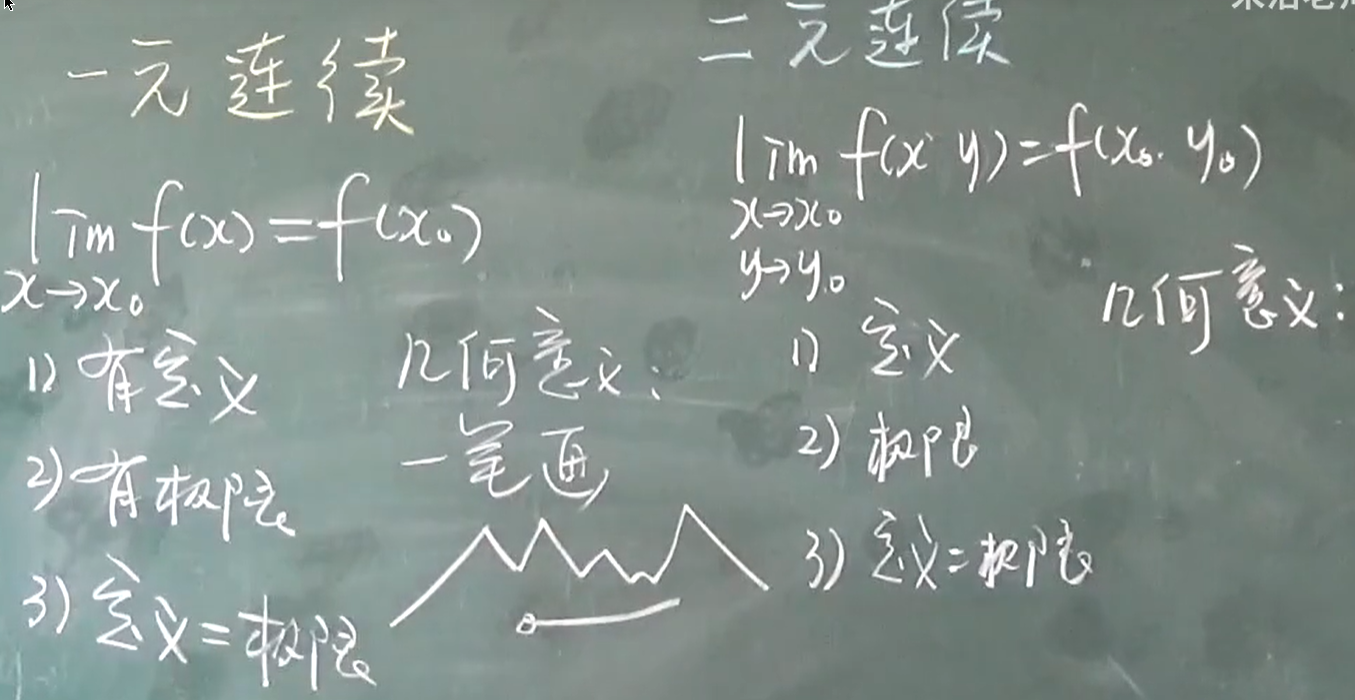 一元连续
lim f(x)=f(x₀)
x→x₀
1) 有定义
2) 有极限
3) 定义=极限
几何意义:
一笔画
二元连续
lim f(x y)=f(x₀. y₀)
x→x₀
y→y₀
1) 定义
2) 极限
3) 定义=极限
几何意义: